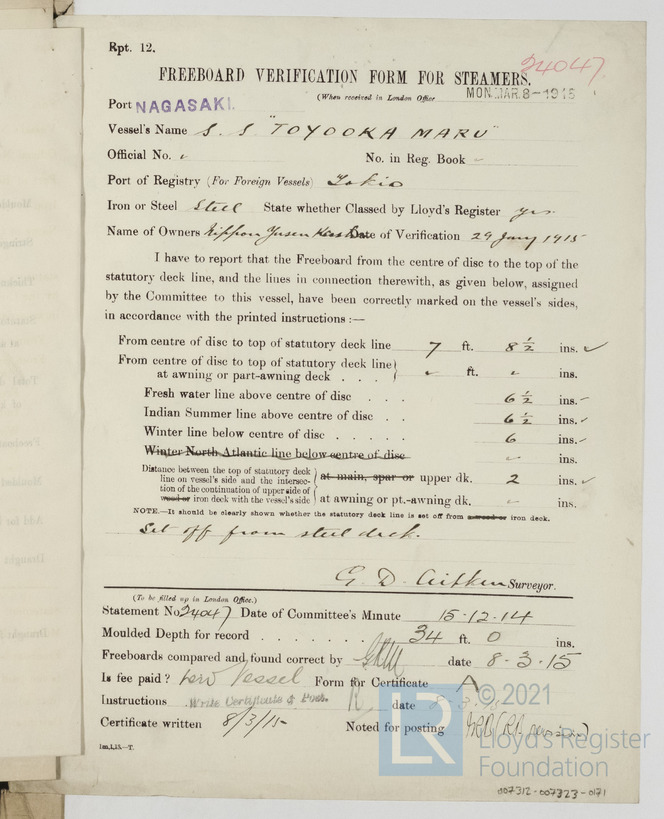 Rpt. 12.
24047
FREEBOARD VERIFICATION FORM FOR STEAMERS.
(When received in London Office MON. MAR. 8-1915
Port NAGASAKI.
Vessel's Name S. S "TOYOOKA MARU"
Official No. No. in Reg. Book
Port of Registry (For Foreign Vessels) Tokio
Iron or Steel Steel State whether Classed by Lloyd's Register yes.
Name of Owners Nippon Yusen Date of Verification 29 Jany 1915
I have to report that the Freeboard from the centre of disc to the top of the
statutory deck line, and the lines in connection therewith, as given below, assigned
by the Committee to this vessel, have been correctly marked on the vessel's sides,
in accordance with the printed instructions :—
From centre of disc to top of statutory deck line 7 ft. 8 ½ ins. ✓
From centre of disc to top of statutory deck line
at awning or part-awning deck . . . ft. ins.
Fresh water line above centre of disc . . . 6 ½ ins.
Indian Summer line above centre of disc . . 6 ½ ins.
Winter line below centre of disc . . . . . 6 ins.
Winter North Atlantic line below centre of disc ins.
Distance between the top of statutory deck
line on vessel's side and the intersec- at main, spar or upper dk. 2 ins. ✓
tion of the continuation of upper side of
wood or iron deck with the vessel's side at awning or pt.-awning dk. ins.
NOTE.—It should be clearly shown whether the statutory deck line is set off from a wood or iron deck.
Set off from steel deck.
G. D. Aitken Surveyor.
(To be filled up in London Office.)
Statement No. 24047 Date of Committee's Minute 15-12-14
Moulded Depth for record . . . . . . . 34 ft. 0 ins.
Freeboards compared and found correct by date 8-3-15
Is fee paid? Vessel Form for Certificate A
Instructions Write Certificate & Post. date
Certificate written 8/3/15 Noted for posting
1m,1,15.—T.
LR © 2021
Lloyd's Register
Foundation
007312-007323-0171